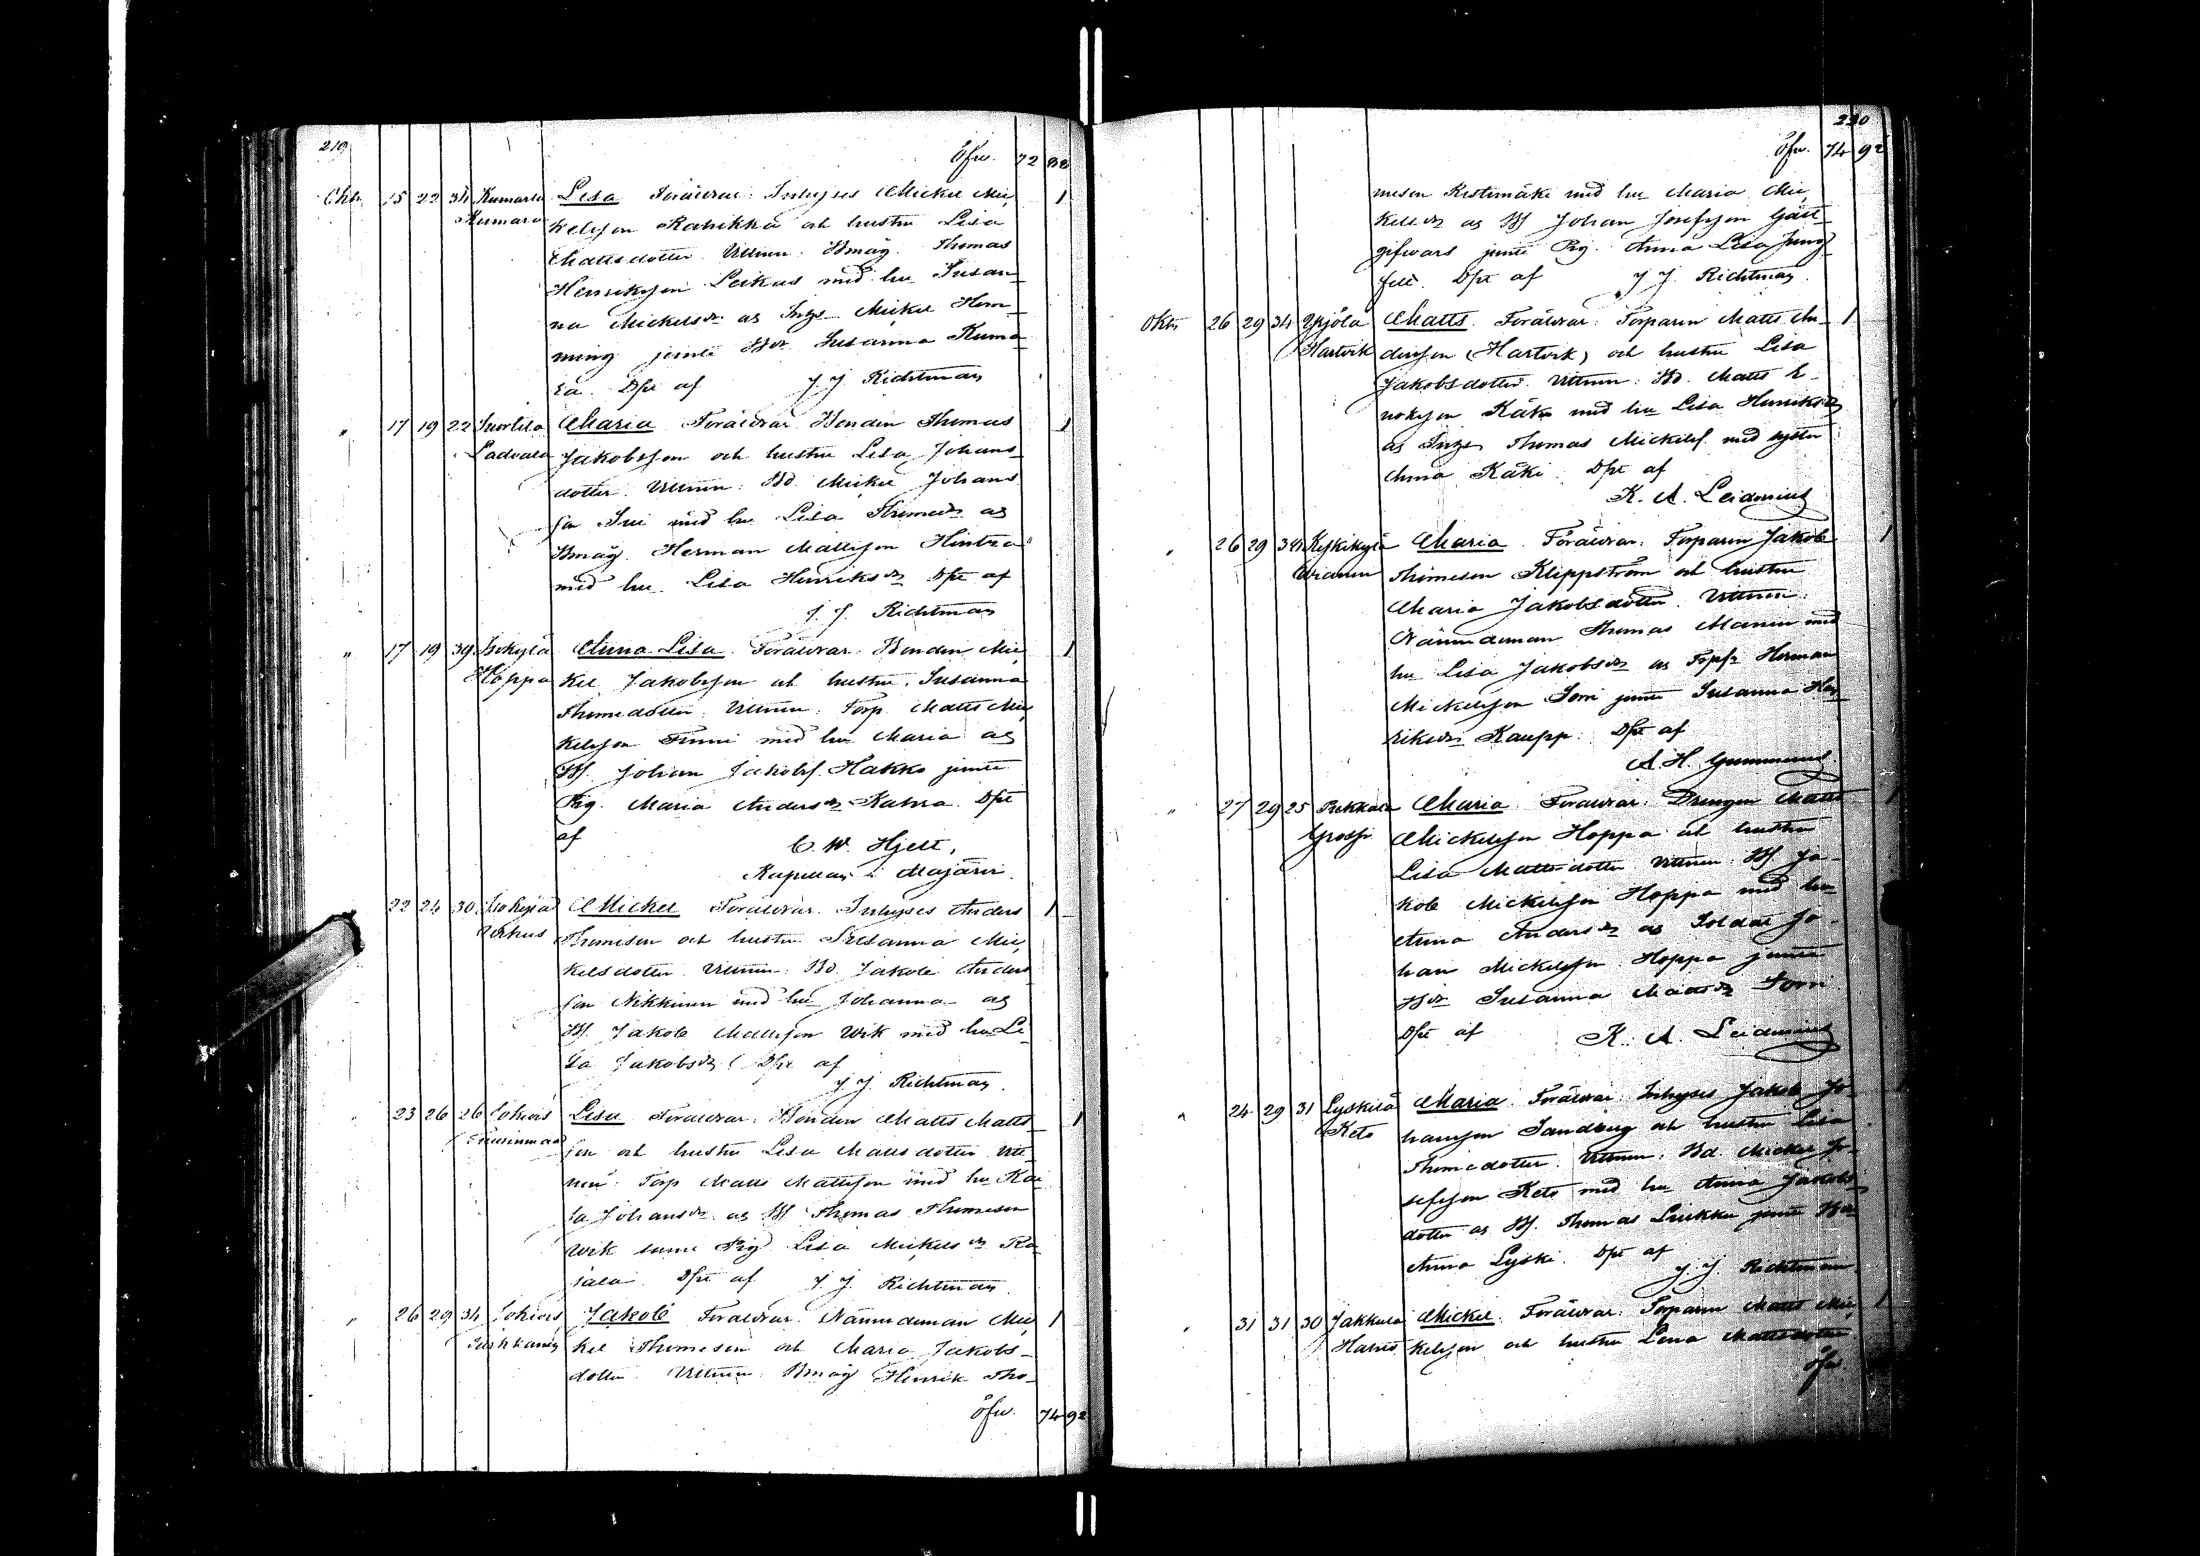 219
Öfw. 72 88
Oktr. 15 22 34 Kumarla Lisa Föräldrar: Inhyses Mickel Mic-
Kumara kelsson Rahikka och hustru Lisa
Mattsdotter. Vittnen: Bmåg. Thomas
Henriksson Leikus med hu Susan-
na Mickelsdr og Inhs Mickel Hem-
ming jemte Bdr Susanna Kuma-
ra. Dpt af J. J. Richtman
" 17 19 22 Ladvala Maria Föräldrar Bonden Thomas
Jakobsson och hustru Lisa Johans-
dotter. Vittnen: Bd. Mickel Johans-
son med hu Lisa Thomasdr og
Bmåg. Herman Mattsson Hintza
med hu Lisa Henriksdr Dpt af
J. J. Richtman
" 17 19 39 Isokylä Anna Lisa. Föräldrar: Bonden Mic-
Hoppa kel Jakobsson och hustru Susanna
Thomædotter. Vittnen: Torp. Matts Mic-
kelsson med hu Maria og
Bs. Johan Jakobs. Hakko jemte
Pig. Maria Andersdr Dpt
af C. W. Hjelt,
Kapellan i
22 24 30 Isokylä Mickel Föräldrar. Inhyses Anders
Thomesson och hustru Susanna Mic-
kelsdotter Vittnen: Bd. Jakob Anders-
son Nikkinen med hu Johanna og
Bs. Jakob Mattsson Wik med hu Li-
sa Jakobsdr Dpt af
J. J. Richtman.
23 26 26 Lisa Föräldrar: Bonden Matts Matts-
son och hustru Lisa Mattsdotter Vitt-
nen: Torp Matts Mattsson med hu Kai-
sa Johansdr og Bs Thomas Thomesson
Wik samt Pig Lisa Mickelsdr
Dpt af J. J. Richtman.
" 26 29 34 Jakob Föräldrar: Nämndeman Mic-
kel Thomesson och Maria Jakobs-
dotter Vittnen: Bmåg Henrik Tho-
Öfw. 74 92
220
Öfw. 74 92
messon med hu Maria Mic-
kelsdr og Bs Johan Josefsson Gäst-
gifwars jemte Pig. Anna Lisa
Dpt af J. J. Richtman.
Oktr 26 29 34 Yrjölä Matts. Föräldrar: Torparen Matts An-
Hartvik dersson (Hartvik) och hustru Lisa
Jakobsdotter. Vittnen: Bd. Matts E-
noksson Käki med hu Lisa Henriksdr
og Inhs Thomas Mickelss. med syster
Anna Käki. Dpt af
K. A. Leidenius
" 26 29 34 Keskikylä Maria. Föräldrar: Torparen Jakob
Thomesson Klippström och hustru
Maria Jakobsdotter. Vittnen:
Nämndeman Thomas Manin med
hu Lisa Jakobsdr og Herman
Mickelsson Sorri jemte Susanna Hen-
riksdr Kaupp. Dpt af
A. H. Gummerus.
" 27 29 25 Pukkala Maria. Föräldrar: Drengen Matts
Mickelsson Hoppa och hustru
Lisa Mattsdotter Vittnen: Bs Ja-
kob Mickelsson Hoppa med hu
Anna Andersdr og Soldat Jo-
han Mickelsson Hoppa jemte
Bdr Susanna Mattsdr Sorri.
Dpt af K. A. Leidenius
" 24 29 31 Lyskilä Maria. Föräldrar: Inhyses Jakob Jo-
Keto hansson Sandberg och hustru Lisa
Thomædotter. Vittnen: Bd. Mickel Jo-
sefsson Keto med hu Anna Jakobs-
dotter og Bs. Thomas Luukku jemte
Anna Lyski. Dpt af
J. J. Richtman
" 31 31 30 Jakkula Mickel. Föräldrar: Torparen Matts Mic-
Harris kelsson och hustru Lena Mattsdotter
Öfw.